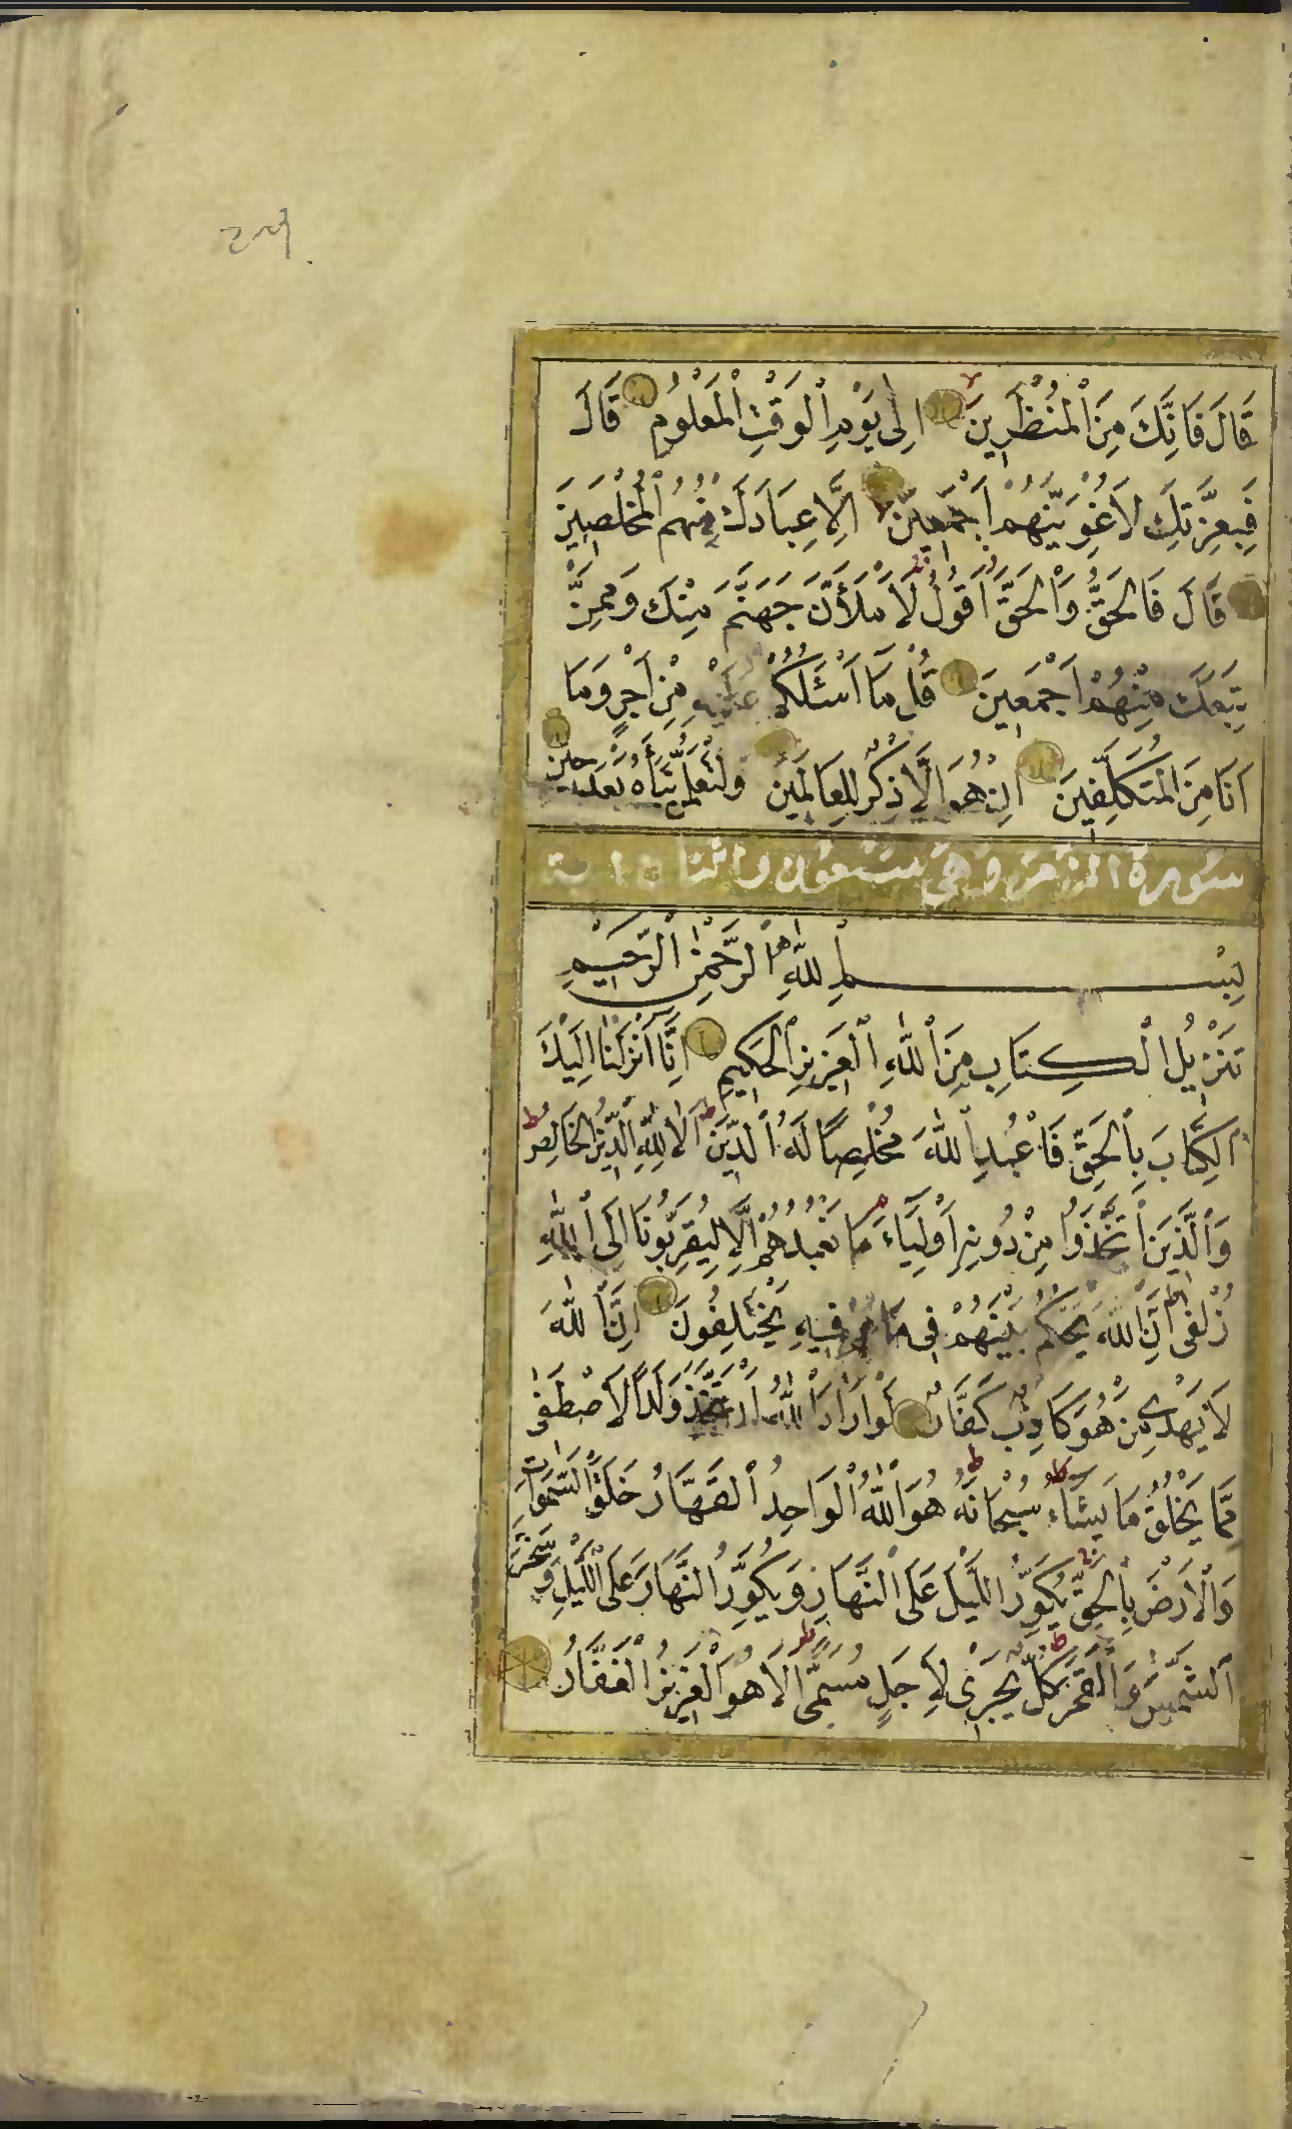 قَالَ فَاِنَّكَ مِنَ الْمُنْظَرِينَ اِلٰى يَوْمِ الْوَقْتِ الْمَعْلُومِ قَالَ
فَبِعِزَّتِكَ لَاُغْوِيَنَّهُمْ اَجْمَعِينَ اِلَّا عِبَادَكَ مِنْهُمُ الْمُخْلَصِينَ
قَالَ فَالْحَقُّ وَالْحَقَّ اَقُولُ لَاَمْلَأَنَّ جَهَنَّمَ مِنْكَ وَمِمَّنْ
تَبِعَكَ مِنْهُمْ اَجْمَعِينَ قُلْ مَا اَسْئَلُكُمْ عَلَيْهِ مِنْ اَجْرٍ وَمَا
اَنَا مِنَ الْمُتَكَلِّفِينَ اِنْ هُوَ اِلَّا ذِكْرٌ لِلْعَالَمِينَ وَلَتَعْلَمُنَّ نَبَأَهُ بَعْدَ حِينٍ
سورة الزمر وهى سبعون واثنتا اية
بِسْمِ اللّٰهِ الرَّحْمٰنِ الرَّحِيمِ
تَنْزِيلُ الْكِتَابِ مِنَ اللّٰهِ الْعَزِيزِ الْحَكِيمِ اِنَّا اَنْزَلْنَا اِلَيْكَ
الْكِتَابَ بِالْحَقِّ فَاعْبُدِ اللّٰهَ مُخْلِصًا لَهُ الدِّينَ اَلَا لِلّٰهِ الدِّينُ الْخَالِصُ
وَالَّذِينَ اتَّخَذُوا مِنْ دُونِهِ اَوْلِيَاءَ مَا نَعْبُدُهُمْ اِلَّا لِيُقَرِّبُونَا اِلَى اللّٰهِ
زُلْفٰى اِنَّ اللّٰهَ يَحْكُمُ بَيْنَهُمْ فِى مَا هُمْ فِيهِ يَخْتَلِفُونَ اِنَّ اللّٰهَ
لَا يَهْدِى مَنْ هُوَ كَاذِبٌ كَفَّارٌ لَوْ اَرَادَ اللّٰهُ اَنْ يَتَّخِذَ وَلَدًا لَاصْطَفٰى
مِمَّا يَخْلُقُ مَا يَشَاءُ سُبْحَانَهُ هُوَ اللّٰهُ الْوَاحِدُ الْقَهَّارُ خَلَقَ السَّمٰوَاتِ
وَالْاَرْضَ بِالْحَقِّ يُكَوِّرُ اللَّيْلَ عَلَى النَّهَارِ وَيُكَوِّرُ النَّهَارَ عَلَى اللَّيْلِ وَسَخَّرَ
الشَّمْسَ وَالْقَمَرَ كُلٌّ يَجْرِى لِاَجَلٍ مُسَمًّى اَلَا هُوَ الْعَزِيزُ الْغَفَّارُ